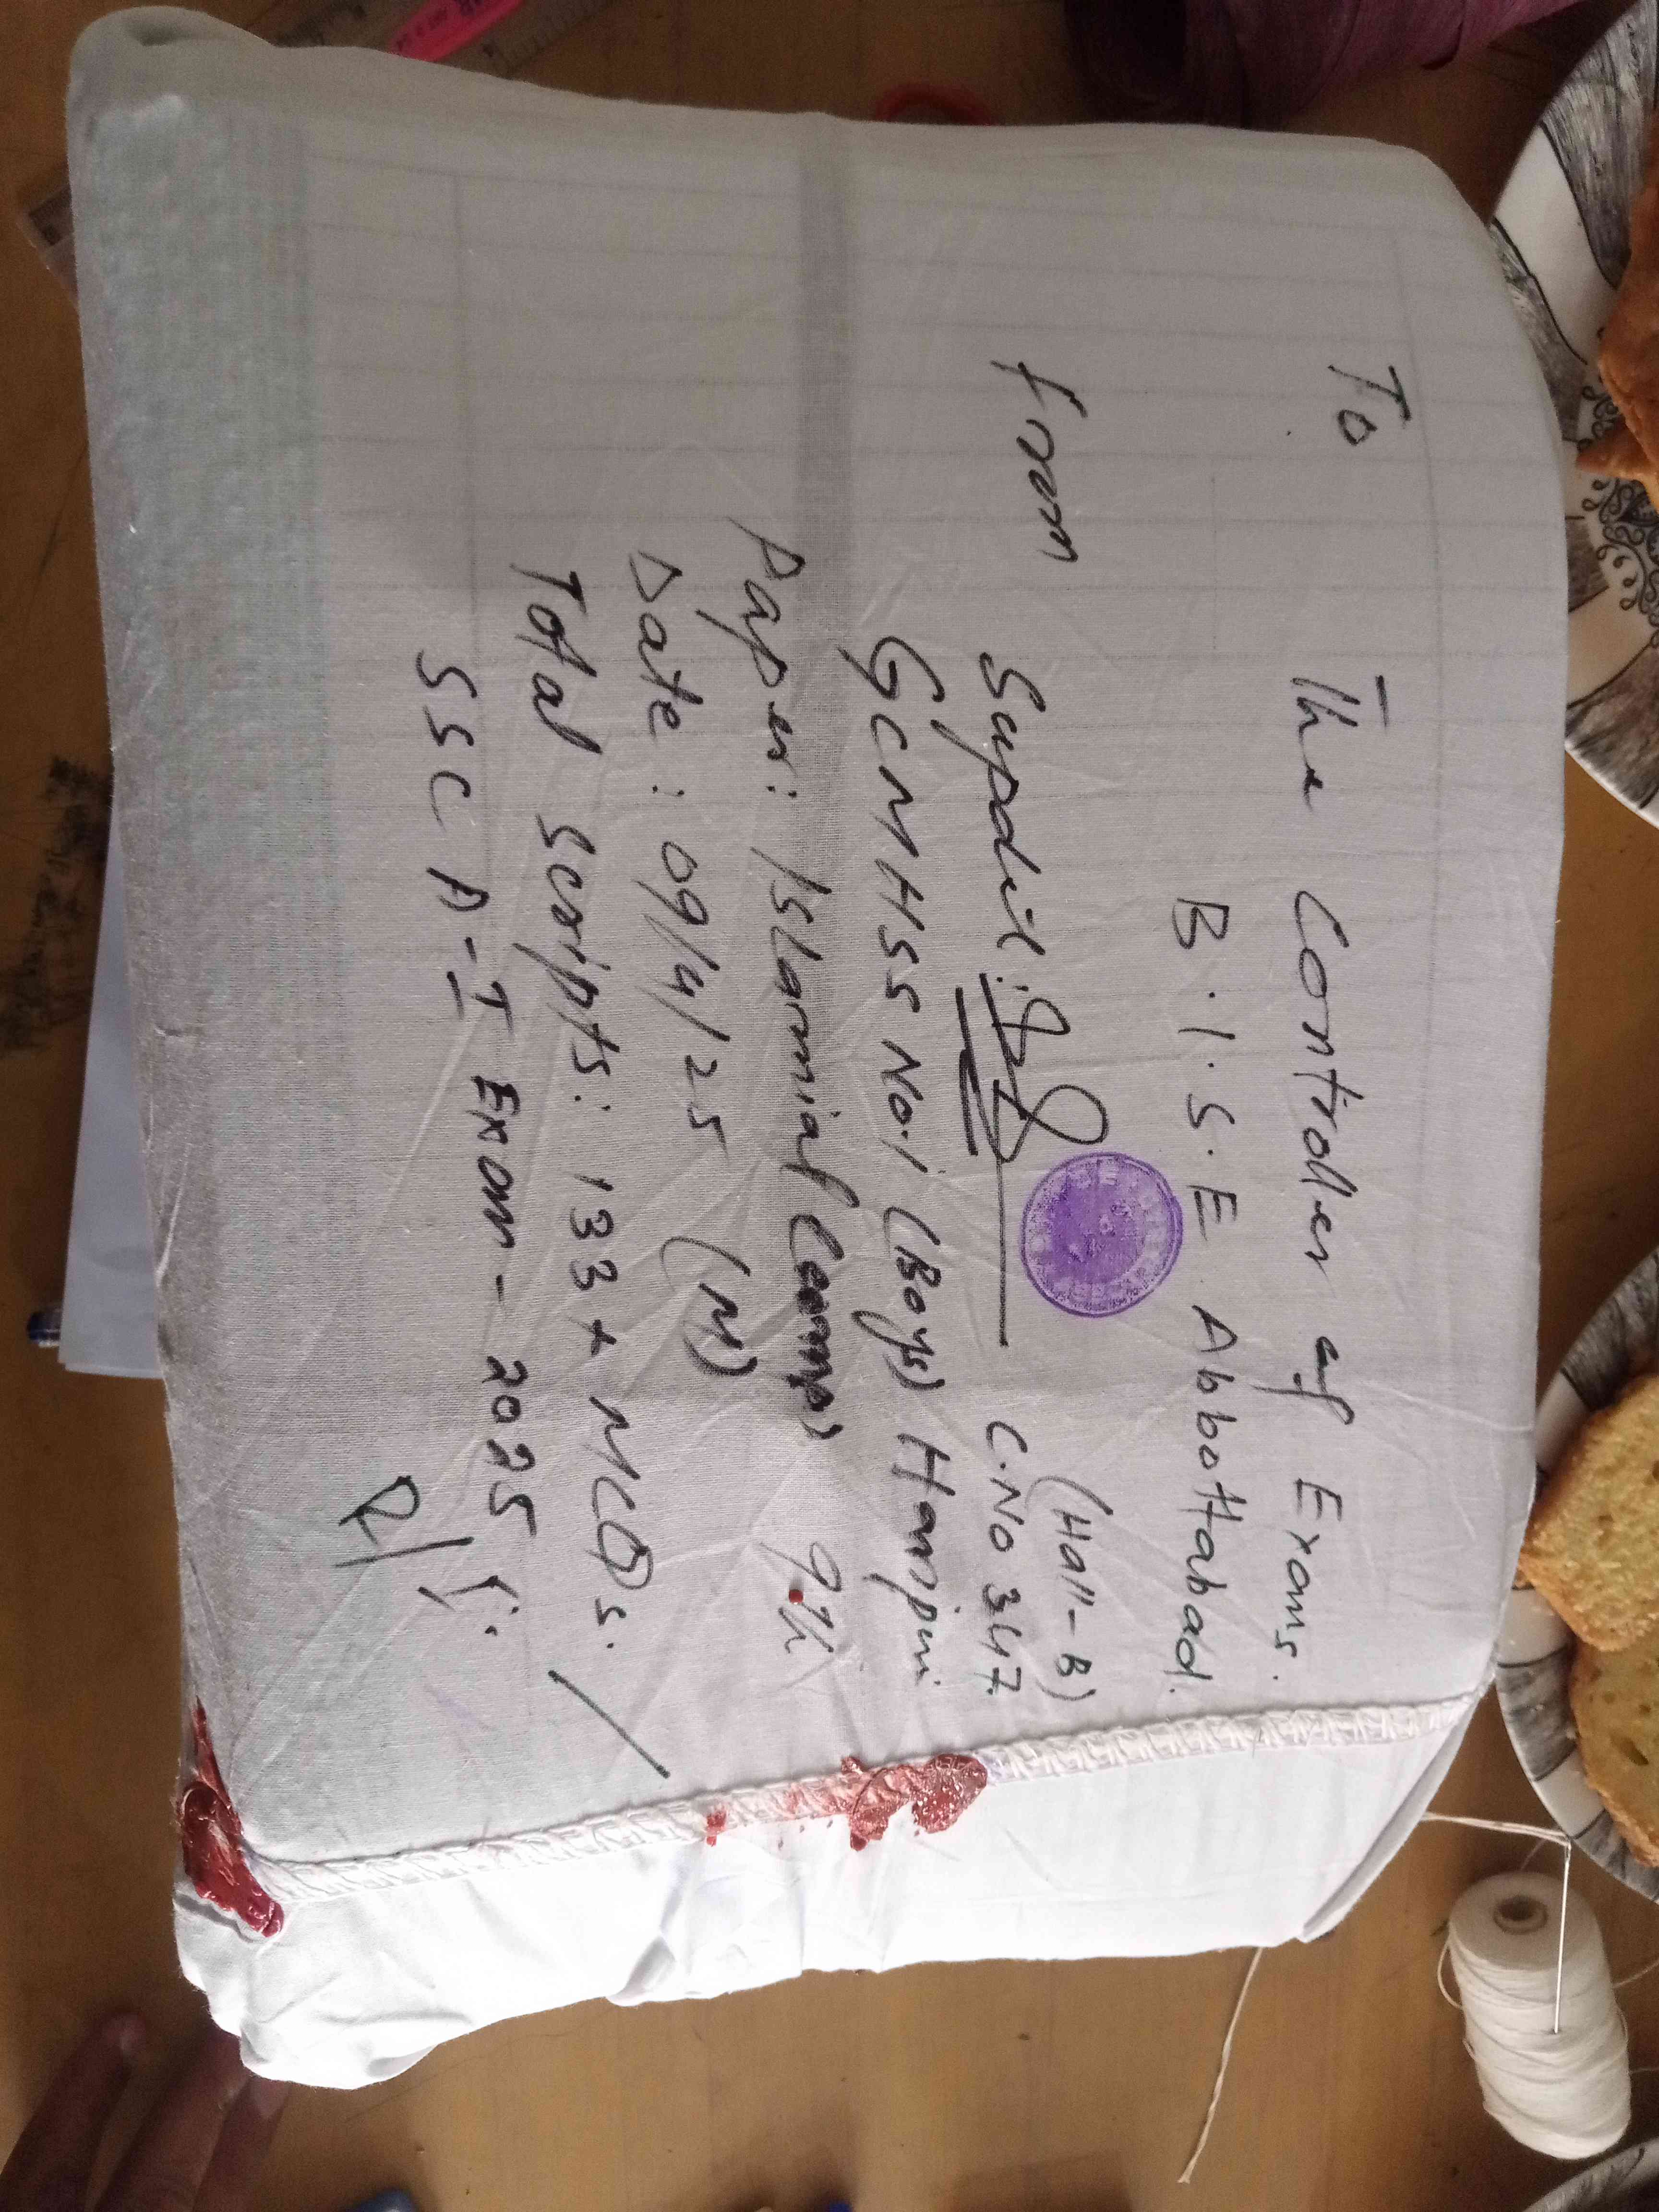 To
The Controller of Exams.
B.I.S.E Abbottabad.
From (Hall-B)
Supdtt: C.No 347
GCMHSS No.1 (Boys) Haripur
Paper: Islamiat (Comp) 9th
Date: 09/4/25 (M)
Total Scripts: 133 + MCQs.
SSC A-I Exam-2025